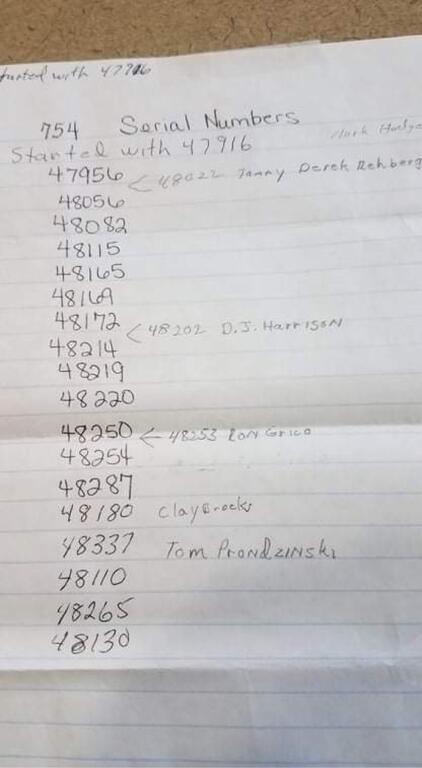 with 47916
754 Serial Numbers
Started with 47916
47956 < 48022 Derek Rehberg
48056
48082
48115
48165
48169
48172
< 48202 D.J. Harrison
48214
48219
48220
48250 < 48253 Ron Grico
48254
48287
48180 Clay Brocks
48337 Tom Prondzinski
48110
48265
48130